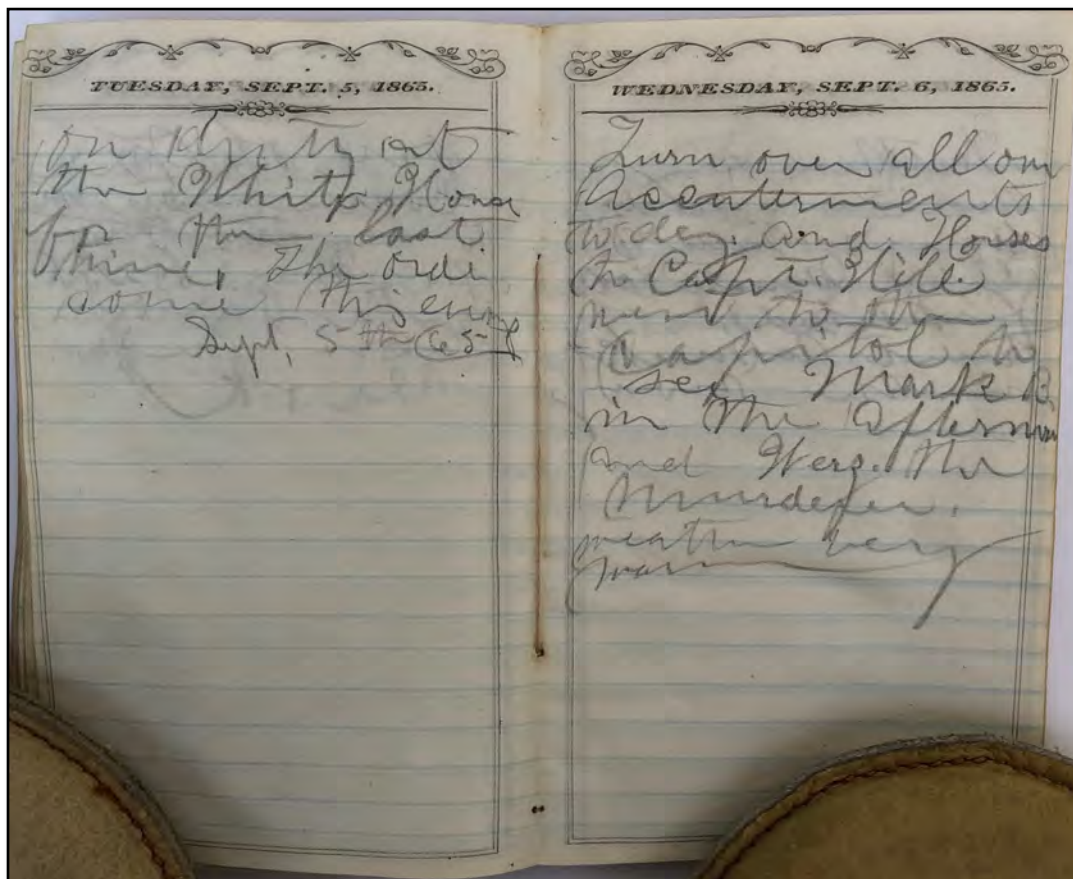 TUESDAY, SEPT. 5, 1865.
on Duty at
the White House
for the last
time, The orde
come this
Sept, 5th 65
WEDNESDAY, SEPT. 6, 1865.
Turn over all our
Accuterments
to day. and Horses
to Capt. Hill
went to the
Capitol to
see Mark B
in the afternoon
and Werz. the
Murderer.
weather very
warm